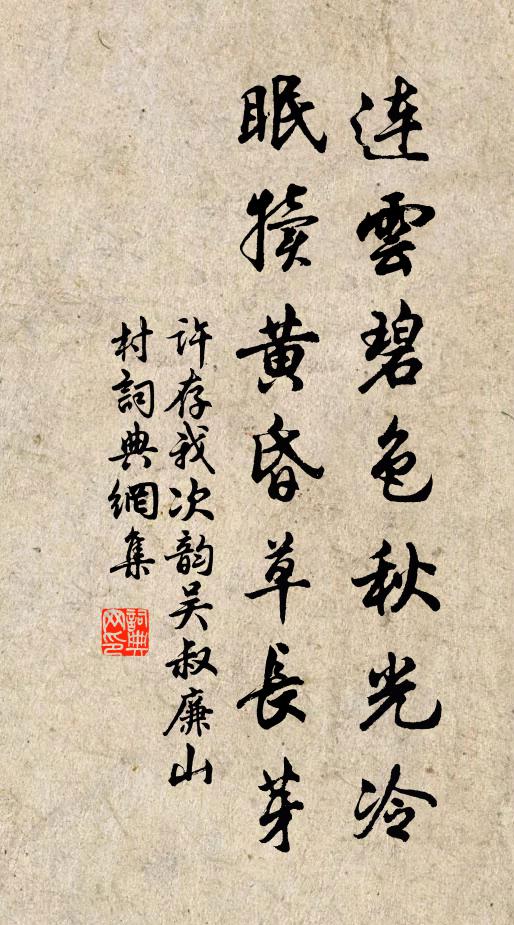 連雲碧色秋光冷
眠犢黃昏草長芽
許存我次韵吴叔廉山
村詞典網集
詞典
网印